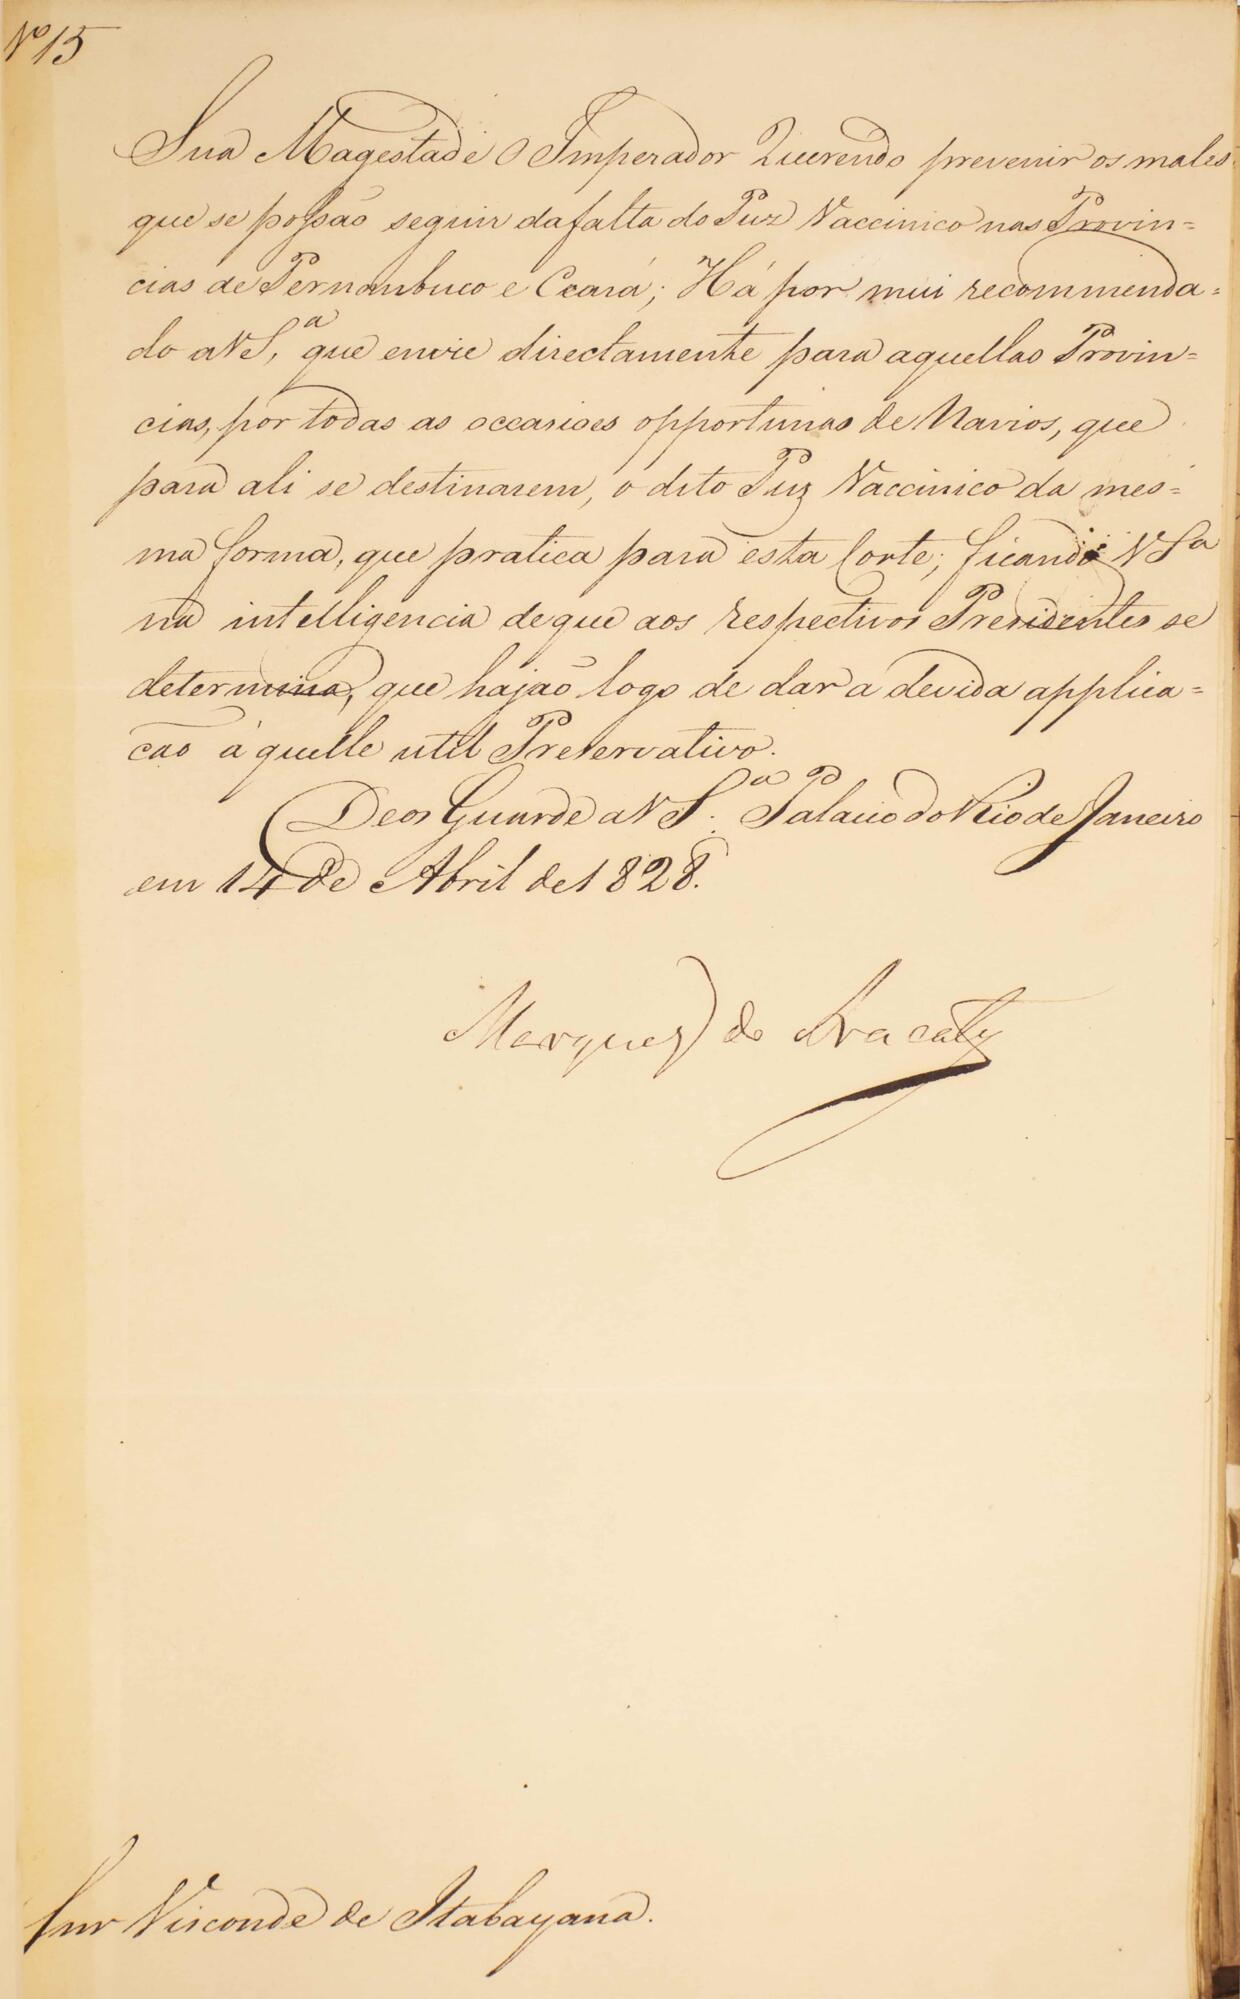 Nº 15
Sua Magestade O Imperador Querendo prevenir os males
que se possão seguir da falta do Puz Vaccinico nas Provin=
cias de Pernambuco e Ceará; Há por mui recommenda=
do a V S.ª que envie directamente para aquellas Provin=
cias, por todas as occasiões opportunas de Navios, que
para ali se destinarem, o dito Puz Vaccinico da mes=
ma forma, que pratica para esta Corte; ficando V Sª
na intelligencia de que aos respectivos Presidentes se
determina, que hajão logo de dar a devida applica=
ção áquelle util Preservativo.
Deos Guarde a V S.ª Palacio do Rio de Janeiro
em 14 de Abril de 1828.
Marquez de Aracaty
Snr Visconde de Itabayana.